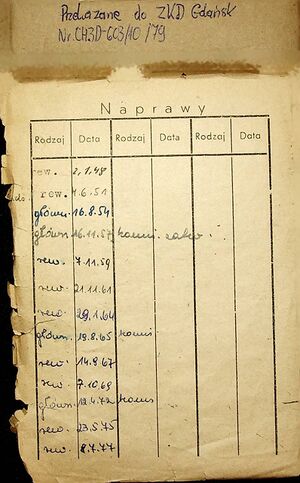 Przekazane do ZKD Gdańsk
Nr. CH3D-603/10/79
Naprawy
Rodzaj Data Rodzaj Data Rodzaj Data
rew. 2.1.48
do rew. 4.6.51
główn. 16.8.54
główn. 16.11.57
rew. 7.11.59
rew. 21.11.61
rew. 29.1.64
główn. 19.8.65
rew. 14.9.67
rew. 7.10.69
główn. 12.4.72
rew. 23.5.75
rew. 8.7.77